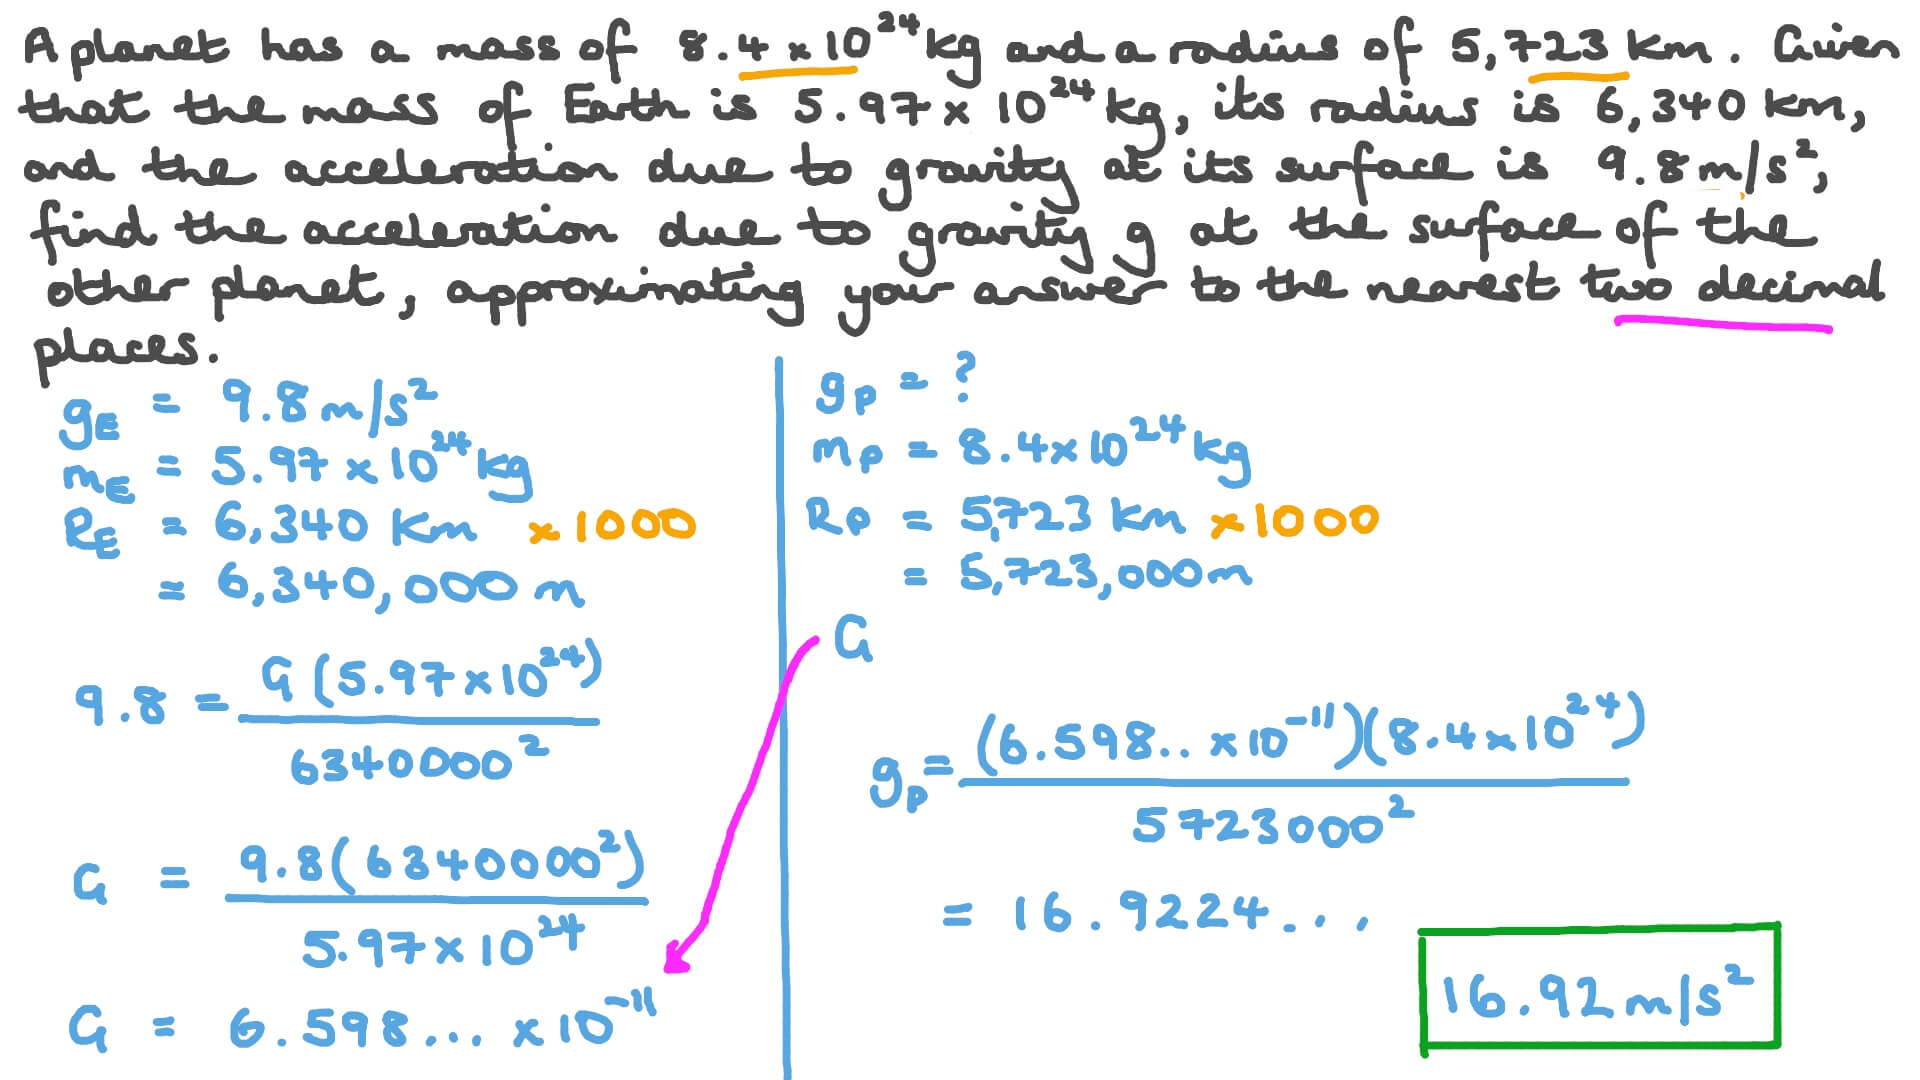 A planet has a mass of 8.4 × 10²⁴ kg and a radius of 5,723 km. Given
that the mass of Earth is 5.97 × 10²⁴ kg, its radius is 6,340 km,
and the acceleration due to gravity at its surface is 9.8 m/s²,
find the acceleration due to gravity g at the surface of the
other planet, approximating your answer to the nearest two decimal
places.
g_E = 9.8 m/s²
m_E = 5.97 × 10²⁴ kg
R_E = 6,340 km × 1000
= 6,340,000 m
9.8 = G (5.97 × 10²⁴)
6340000²
G = 9.8(6340000²)
5.97 × 10²⁴
G = 6.598... × 10⁻¹¹
g_p = ?
m_p = 8.4 × 10²⁴ kg
R_p = 5,723 km × 1000
= 5,723,000 m
G
g_p = (6.598.. × 10⁻¹¹)(8.4 × 10²⁴)
5723000²
= 16.9224...
16.92 m/s²